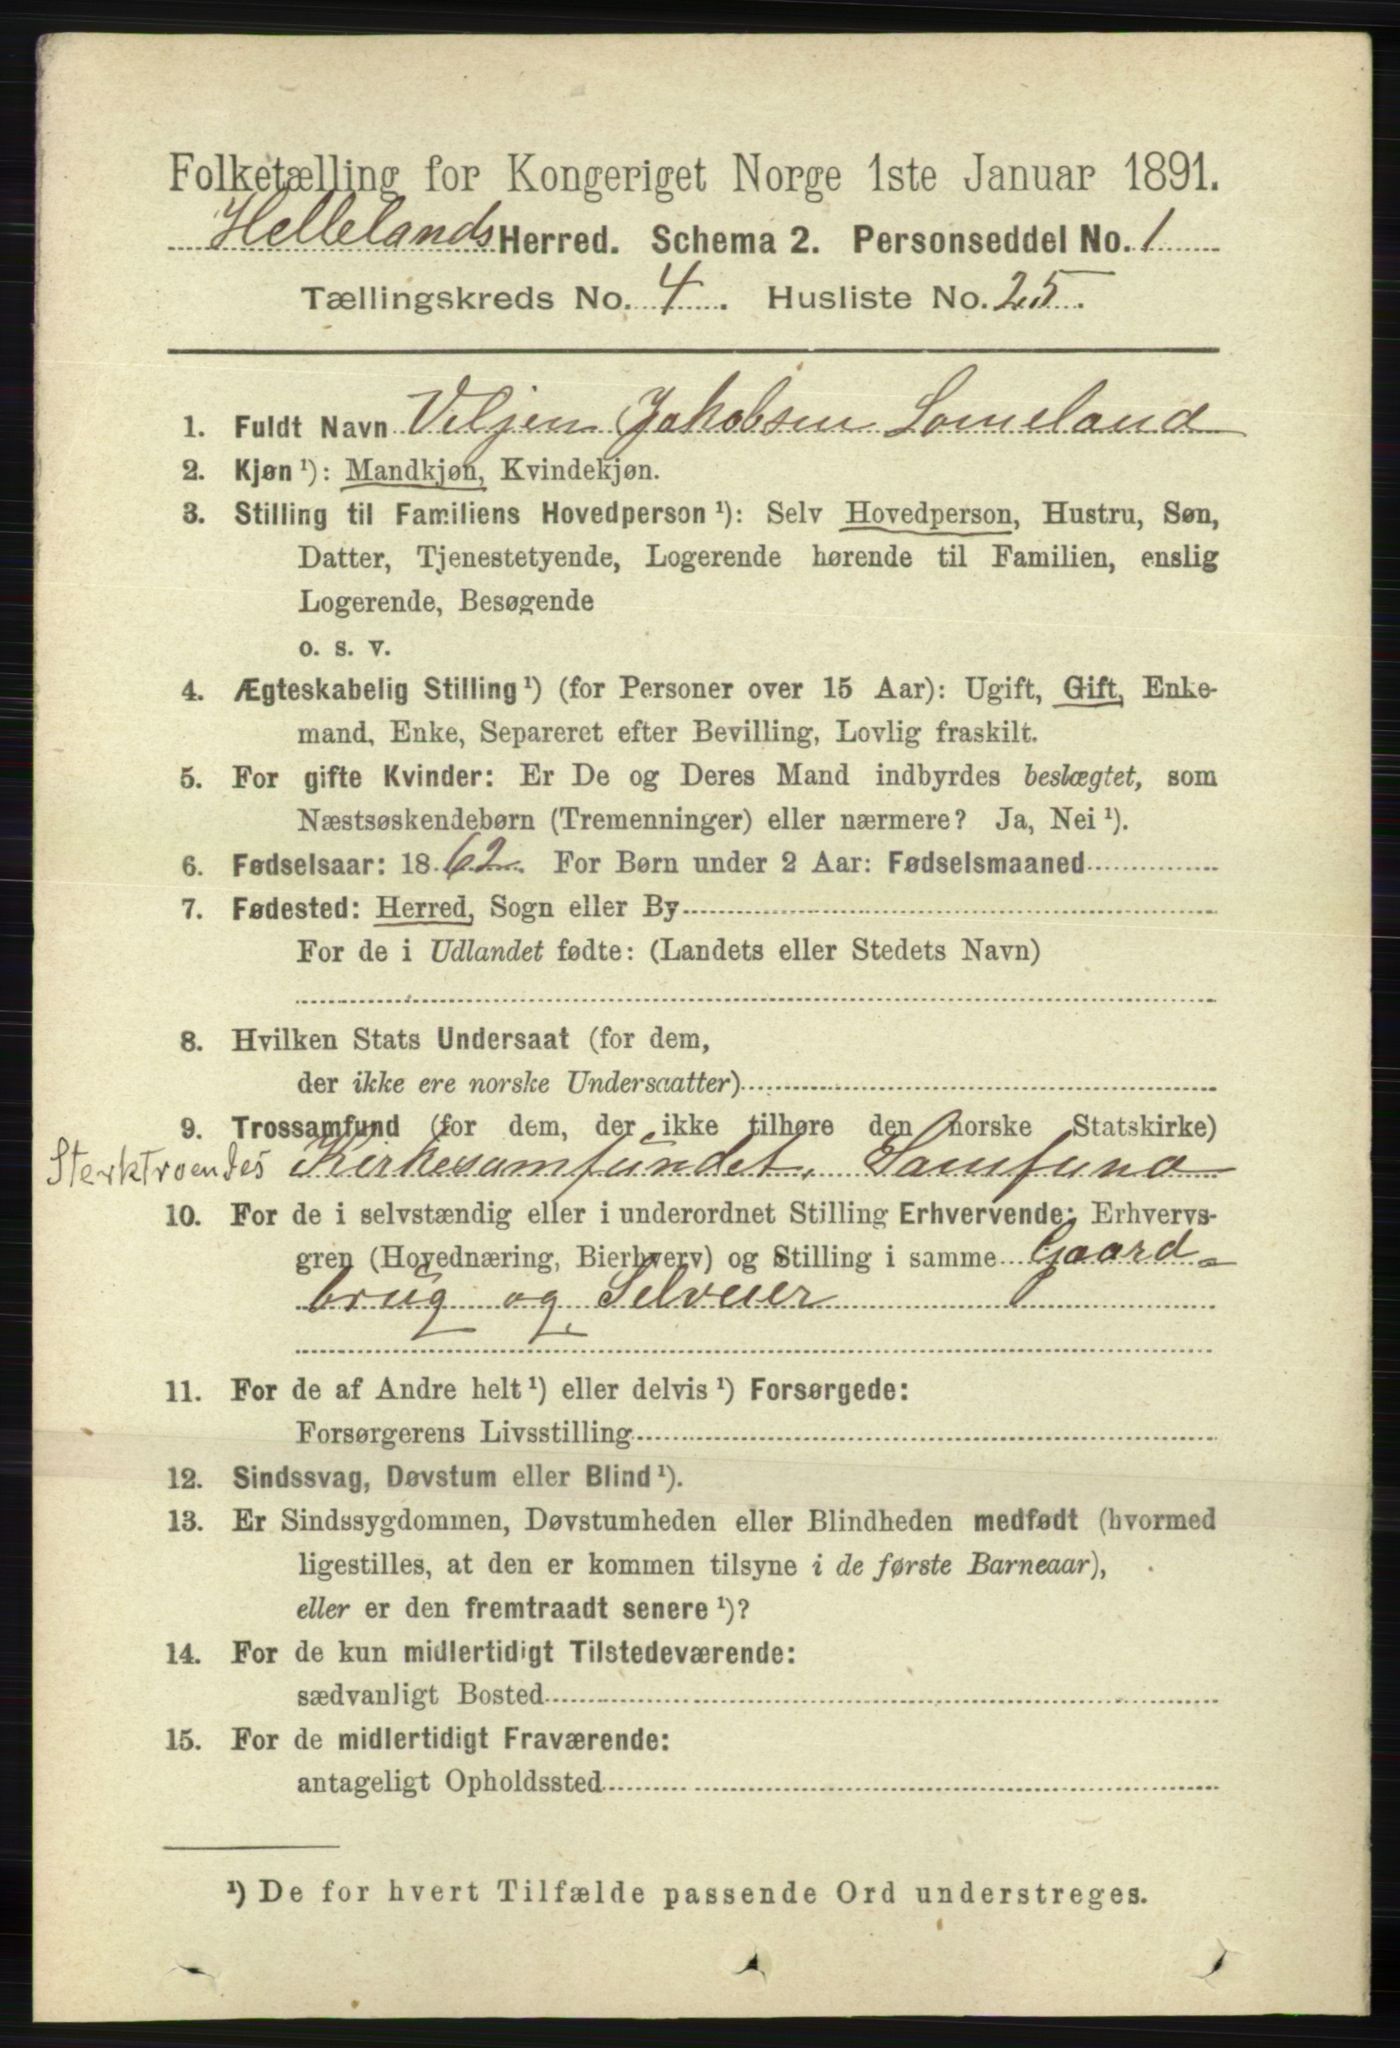 Folketælling for Kongeriget Norge 1ste Januar 1891.
Hellelands Herred. Schema 2. Personseddel No. 1
Tællingskreds No. 4. Husliste No. 25.
1. Fuldt Navn Veljen Jakobsen Lomeland
2. Kjøn ¹): Mandkjøn, Kvindekjøn.
3. Stilling til Familiens Hovedperson ¹): Selv Hovedperson, Hustru, Søn,
Datter, Tjenestetyende, Logerende hørende til Familien, enslig
Logerende, Besøgende
o. s. v.
4. Ægteskabelig Stilling ¹) (for Personer over 15 Aar): Ugift, Gift, Enke-
mand, Enke, Separeret efter Bevilling, Lovlig fraskilt.
5. For gifte Kvinder: Er De og Deres Mand indbyrdes beslægtet, som
Næstsøskendebørn (Tremenninger) eller nærmere? Ja, Nei ¹).
6. Fødselsaar: 1862. For Børn under 2 Aar: Fødselsmaaned
7. Fødested: Herred, Sogn eller By
For de i Udlandet fødte: (Landets eller Stedets Navn)
8. Hvilken Stats Undersaat (for dem,
der ikke ere norske Undersaatter)
9. Trossamfund (for dem, der ikke tilhøre den norske Statskirke)
Sterktroendes Kirkesamfundet. Samfund
10. For de i selvstændig eller i underordnet Stilling Erhvervende: Erhvervs-
gren (Hovednæring, Bierhverv) og Stilling i samme Gaard-
brug og Selveier
11. For de af Andre helt ¹) eller delvis ¹) Forsørgede:
Forsørgerens Livsstilling
12. Sindssvag, Døvstum eller Blind ¹).
13. Er Sindssygdommen, Døvstumheden eller Blindheden medfødt (hvormed
ligestilles, at den er kommen tilsyne i de første Barneaar),
eller er den fremtraadt senere ¹)?
14. For de kun midlertidigt Tilstedeværende:
sædvanligt Bosted
15. For de midlertidigt Fraværende:
antageligt Opholdssted
¹) De for hvert Tilfælde passende Ord understreges.